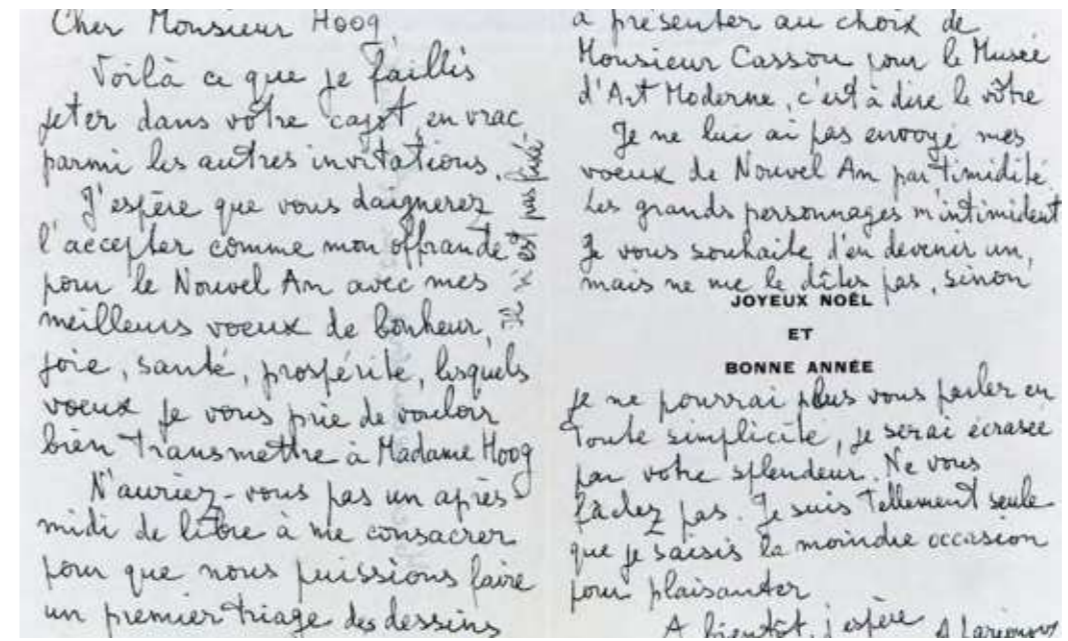 Cher Monsieur Hoog,
Voilà ce que je faillis
jeter dans votre cagot, en vrac
parmi les autres invitations.
J'espère que vous daignerez
l'accepter comme mon offrande
pour le Nouvel An avec mes
meilleurs voeux de bonheur,
joie, santé, prospérité, lesquels
voeux je vous prie de vouloir
bien transmettre à Madame Hoog
N'auriez-vous pas un après
midi de libre à me consacrer
pour que nous puissions faire
un premier triage des dessins
Il n'est pas fixé.
à présenter au choix de
Monsieur Cassou pour le Musée
d'Art Moderne, c'est à dire le vôtre
Je ne lui ai pas envoyé mes
voeux de Nouvel An par timidité.
Les grands personnages m'intimident
Je vous souhaite d'en devenir un,
mais ne me le dîtes pas, sinon
JOYEUX NOËL
ET
BONNE ANNÉE
je ne pourrai plus vous parler en
toute simplicité, je serai écrasée
par votre splendeur. Ne vous
fâchez pas. Je suis tellement seule
que je saisis la moindre occasion
pour plaisanter
A bientôt, j'espère A Larionov